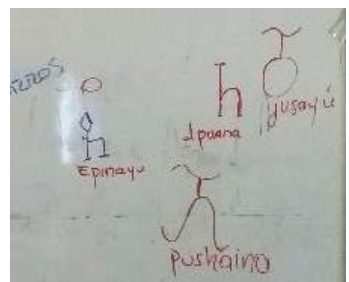 Epinayu
Ipuana
Jusayú
pushaina